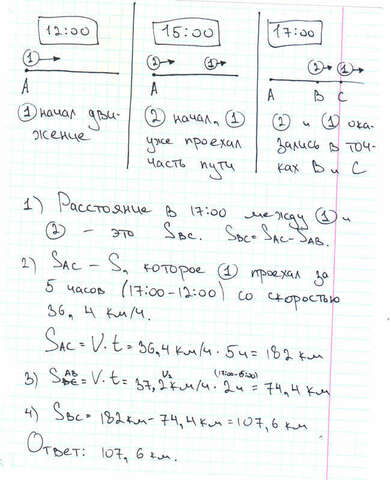 12:00 15:00 17:00
1 2 1 2 1
A A A B C
1 начал дви-
жение
2 начал, 1
уже проехал
часть пути
2 и 1 ока-
зались в точ-
ках B и C
1) Расстояние в 17:00 между 1 и
2 - это SBC. SBC = SAC - SAB.
2) SAC - S, которое 1 проехал за
5 часов (17:00-12:00) со скоростью
36,4 км/ч.
SAC = V·t = 36,4 км/ч · 5ч = 182 км
3) SAB = V·t = 37,2 км/ч · 2ч = 74,4 км
4) SBC = 182км - 74,4км = 107,6 км
Ответ: 107,6 км.